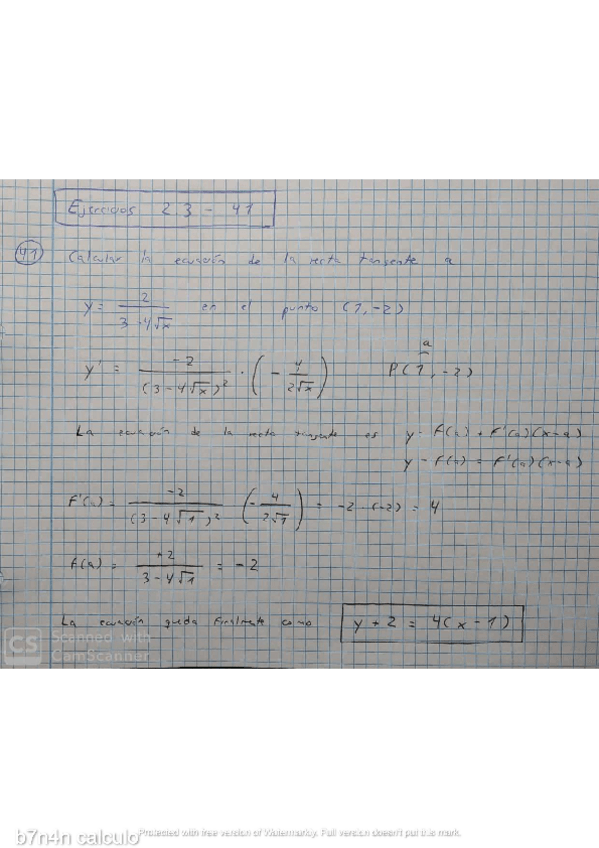 Ejercicios 2.3 - 41
41 Calcular la ecuación de la recta tangente a
y = 2 / (3 - 4√x) en el punto (1, -2)
a
y' = -2 / (3 - 4√x)² · (- 4 / 2√x) P(1, -2)
La ecuación de la recta tangente es y = f(a) + f'(a)(x-a)
y - f(a) = f'(a)(x-a)
f'(a) = -2 / (3 - 4√1)² (- 4 / 2√1) = -2 · (-2) = 4
f(a) = +2 / (3 - 4√1) = -2
La ecuación queda finalmente como y + 2 = 4(x - 1)
CS Scanned with
CamScanner
b7n4n calculo
Protected with free version of Watermarkly. Full version doesn't put this mark.